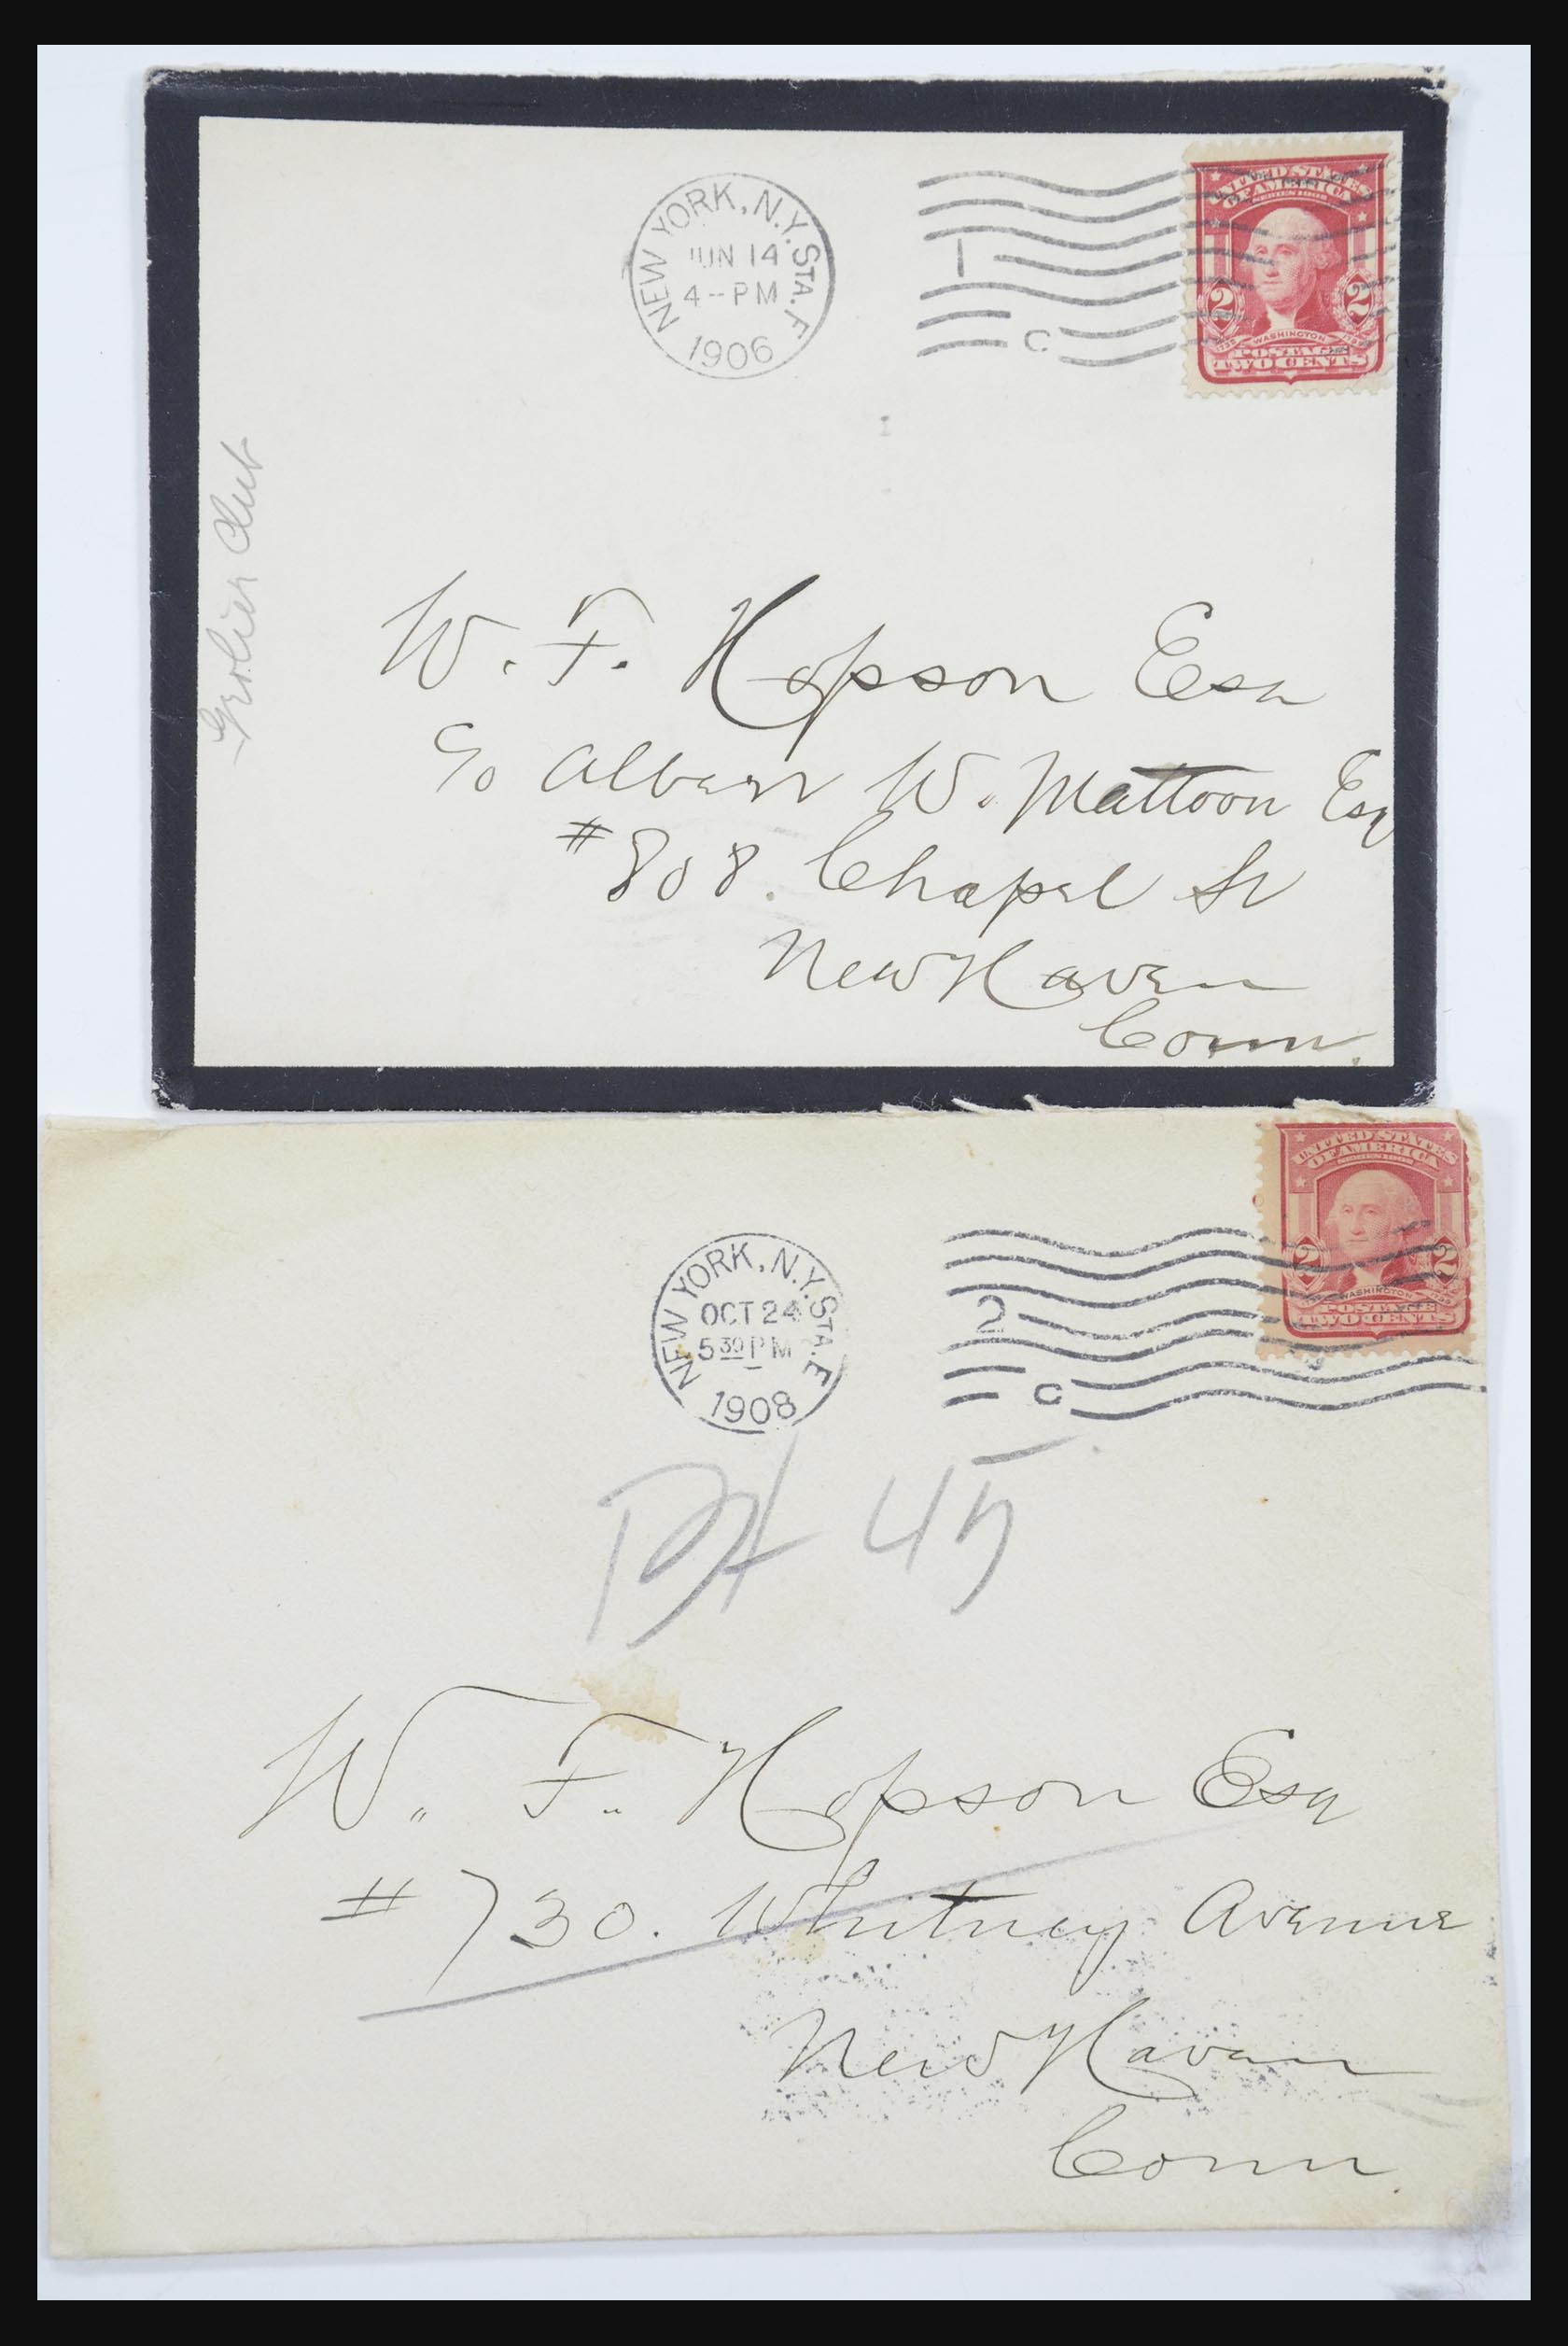 NEW YORK, N.Y. STA. F
JUN 14
4-PM
1906
1
C
UNITED STATES
OF AMERICA
SERIES 1902
2 2
1732 WASHINGTON 1799
POSTAGE
TWO CENTS
Grolier Club
W. F. Hopson Esq
c/o Albert W. Mattoon Esq
#808. Chapel St
New Haven
Conn.
NEW YORK, N.Y. STA. F
OCT 24
5 30 PM
1908
2
C
UNITED STATES
OF AMERICA
SERIES 1902
2 2
WASHINGTON
POSTAGE
TWO CENTS
45
W. F. Hopson Esq
# 730. Whitney Avenue
New Haven
Conn.